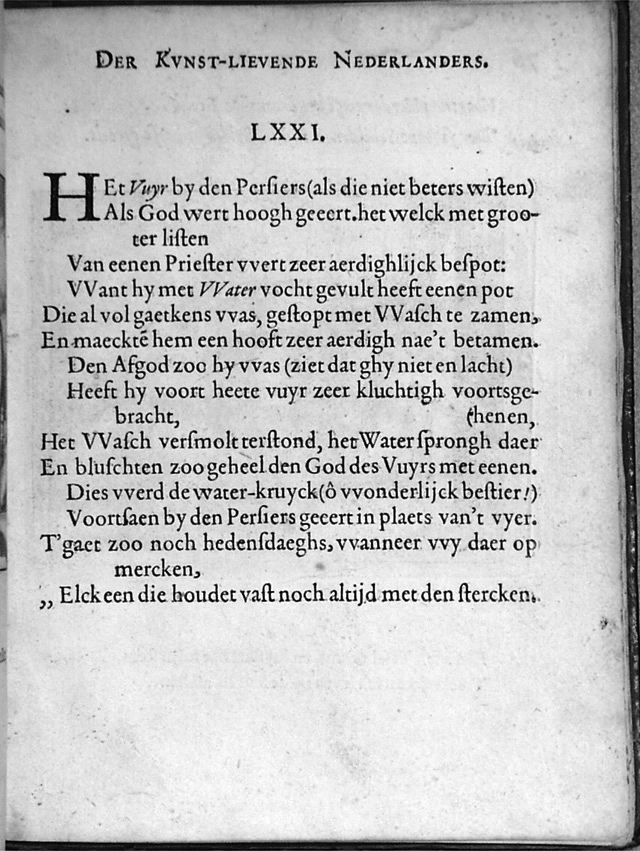 DER KVNST-LIEVENDE NEDERLANDERS.
LXXI.
HEt Vuyr by den Persiers (als die niet beters wisten)
Als God wert hoogh geeert. het welck met groo-
ter listen
Van eenen Priester vvert zeer aerdighlijck bespot:
VVant hy met VVater vocht gevult heeft eenen pot
Die al vol gaetkens vvas, gestopt met VVasch te zamen,
En maecktē hem een hooft zeer aerdigh nae't betamen.
Den Afgod zoo hy vvas (ziet dat ghy niet en lacht)
Heeft hy voort heete vuyr zeer kluchtigh voortsge-
bracht, (henen,
Het VVasch versmolt terstond, het Water sprongh daer
En bluschten zoo geheel den God des Vuyrs met eenen.
Dies vverd de water-kruyck (ô vvonderlijck bestier!)
Voortsaen by den Persiers geeert in plaets van't vyer.
T'gaet zoo noch hedensdaeghs, vvanneer vvy daer op
mercken,
,, Elck een die houdet vast noch altijd met den stercken.